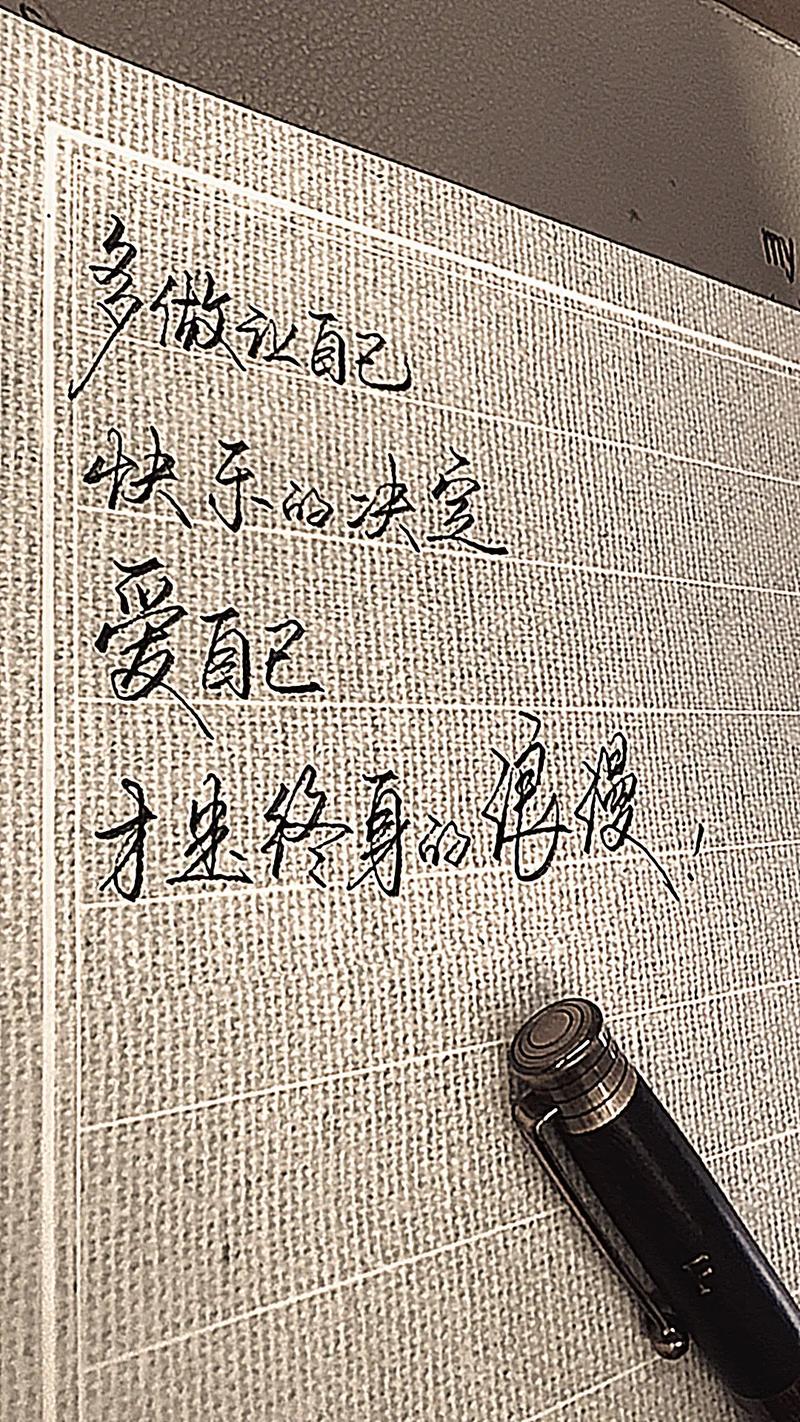 多做让自己
快乐的决定
爱自己
才是终身的浪漫！